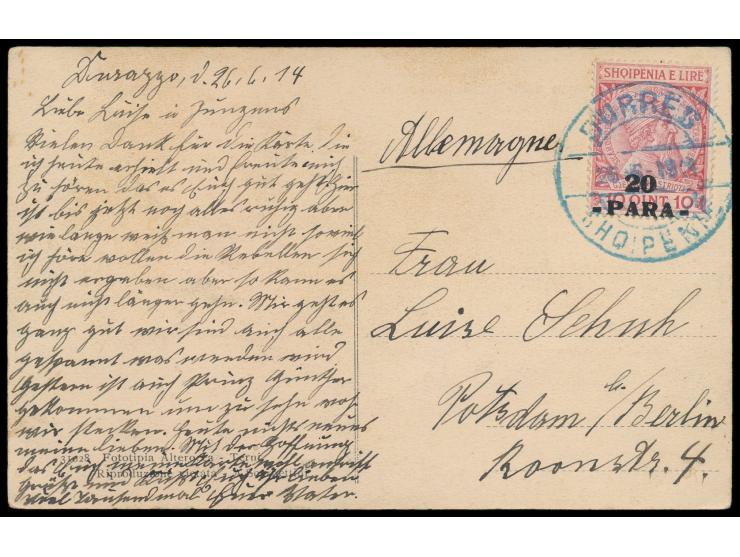 Durazzo, d. 26.6.14
Liebe Luise u Jungens
Vielen Dank für die Karte die
ich heute erhielt und freute mich
zu hören das es Euch gut geht hier
ist bis jetzt noch alles ruhig aber
wie lange weiß man nicht soviel
ich höre wollen die Rebellen sich
nicht ergeben aber so kann es
auch nicht länger gehn. Mir geht es
ganz gut wir sind auch alle
gespannt was werden wird
Gestern ist auch Prinz Günther
gekommen um zu sehn wo
wir stecken. Heute nichts neues
meine lieben. Mit der Hoffnung
das Euch meine Karte
Grüße und Küsse
viel Tausendmal Euer Vater.
31028 Fototipia Alterocca - Terni
Riproduzione vietata
Allemagne
SHQIPENIA E LIRE
DURRËS
20
-PARA-
10 QINT 10
SHQIPENIE
Frau
Luise Schuh
Potsdam b/Berlin
Roonstr. 4.